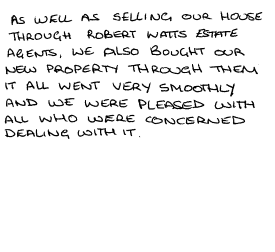 AS WELL AS SELLING OUR HOUSE
THROUGH ROBERT WATTS ESTATE
AGENTS, WE ALSO BOUGHT OUR
NEW PROPERTY THROUGH THEM
IT ALL WENT VERY SMOOTHLY
AND WE WERE PLEASED WITH
ALL WHO WERE CONCERNED
DEALING WITH IT.